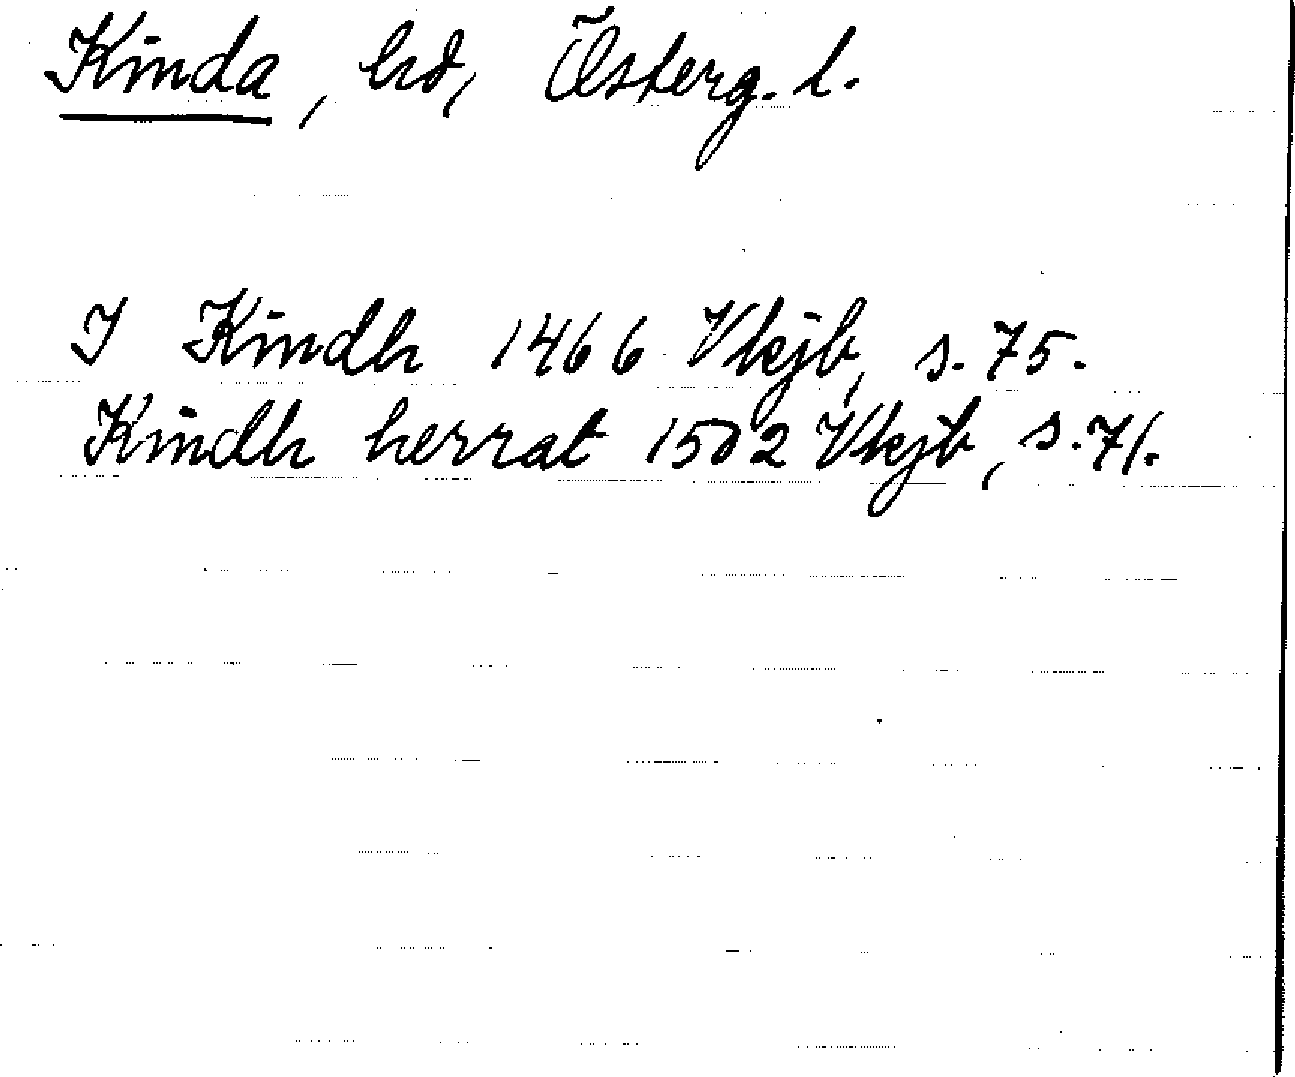 Kinda, hd, Österg. l.
I Kindh 1466 Vkjb, s. 75.
Kindh herrat 1502 Vkjb, s. 71.